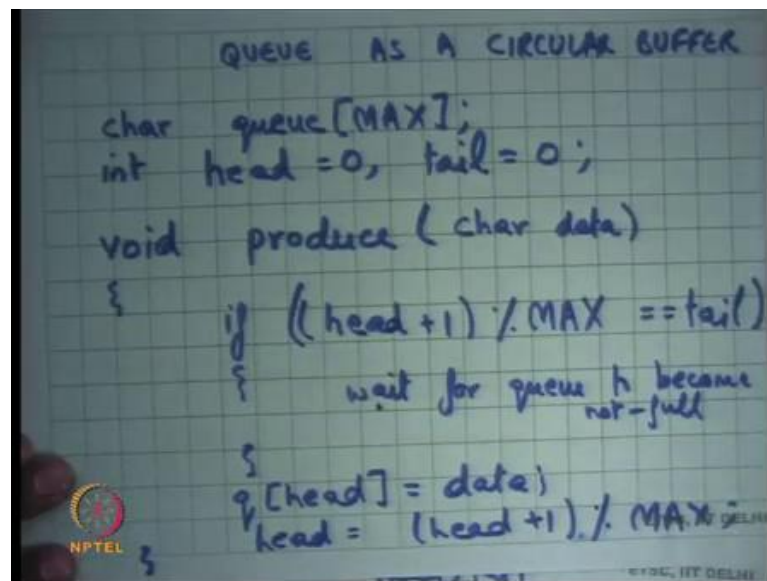 QUEUE AS A CIRCULAR BUFFER
char queue[MAX];
int head = 0, tail = 0;
void produce ( char data)
{
if ((head +1) % MAX == tail)
{ wait for queue to become
not-full
}
q[head] = data;
head = (head +1) % MAX;
}
NPTEL
ETSC, IIT DELHI